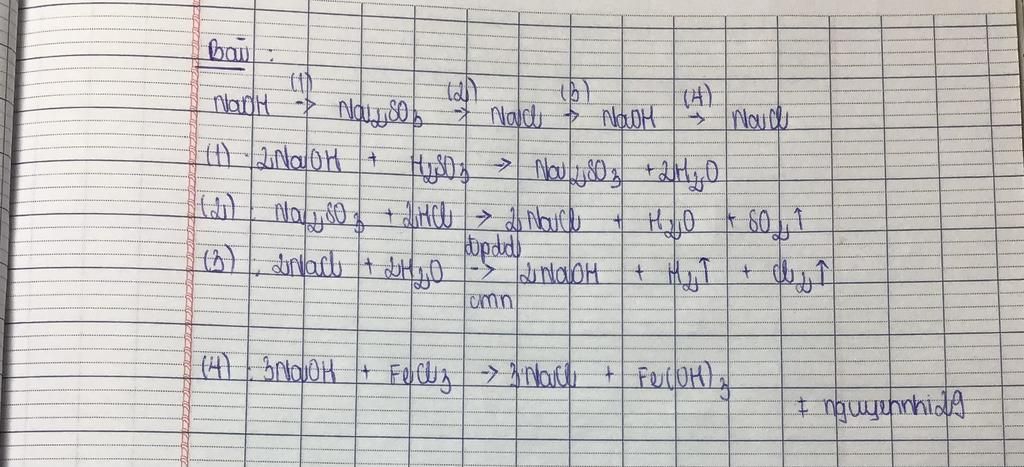 Bài :
NaOH (1)→ Na2SO3 (2)→ NaCl (3)→ NaOH (4)→ NaCl
(1) : 2NaOH + H2SO3 → Na2SO3 + 2H2O
(2) : Na2SO3 + 2HCl → 2NaCl + H2O + SO2↑
(3) : 2NaCl + 2H2O đpdd→cmn 2NaOH + H2↑ + Cl2↑
(4) : 3NaOH + FeCl3 → 3NaCl + Fe(OH)3
# nguyennhi29